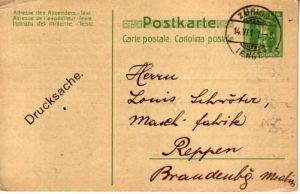 Adresse des Absenders. - Text
Adresse de l'expéditeur. - Texte
Indirizzo del mittente. - Testo
Postkarte
Carte postale. Cartolina postale.
ZÜRICH
14. VII.
Drucksache.
Herrn
Louis Schröter,
Masch-fabrik
Reppen
Brandenbg